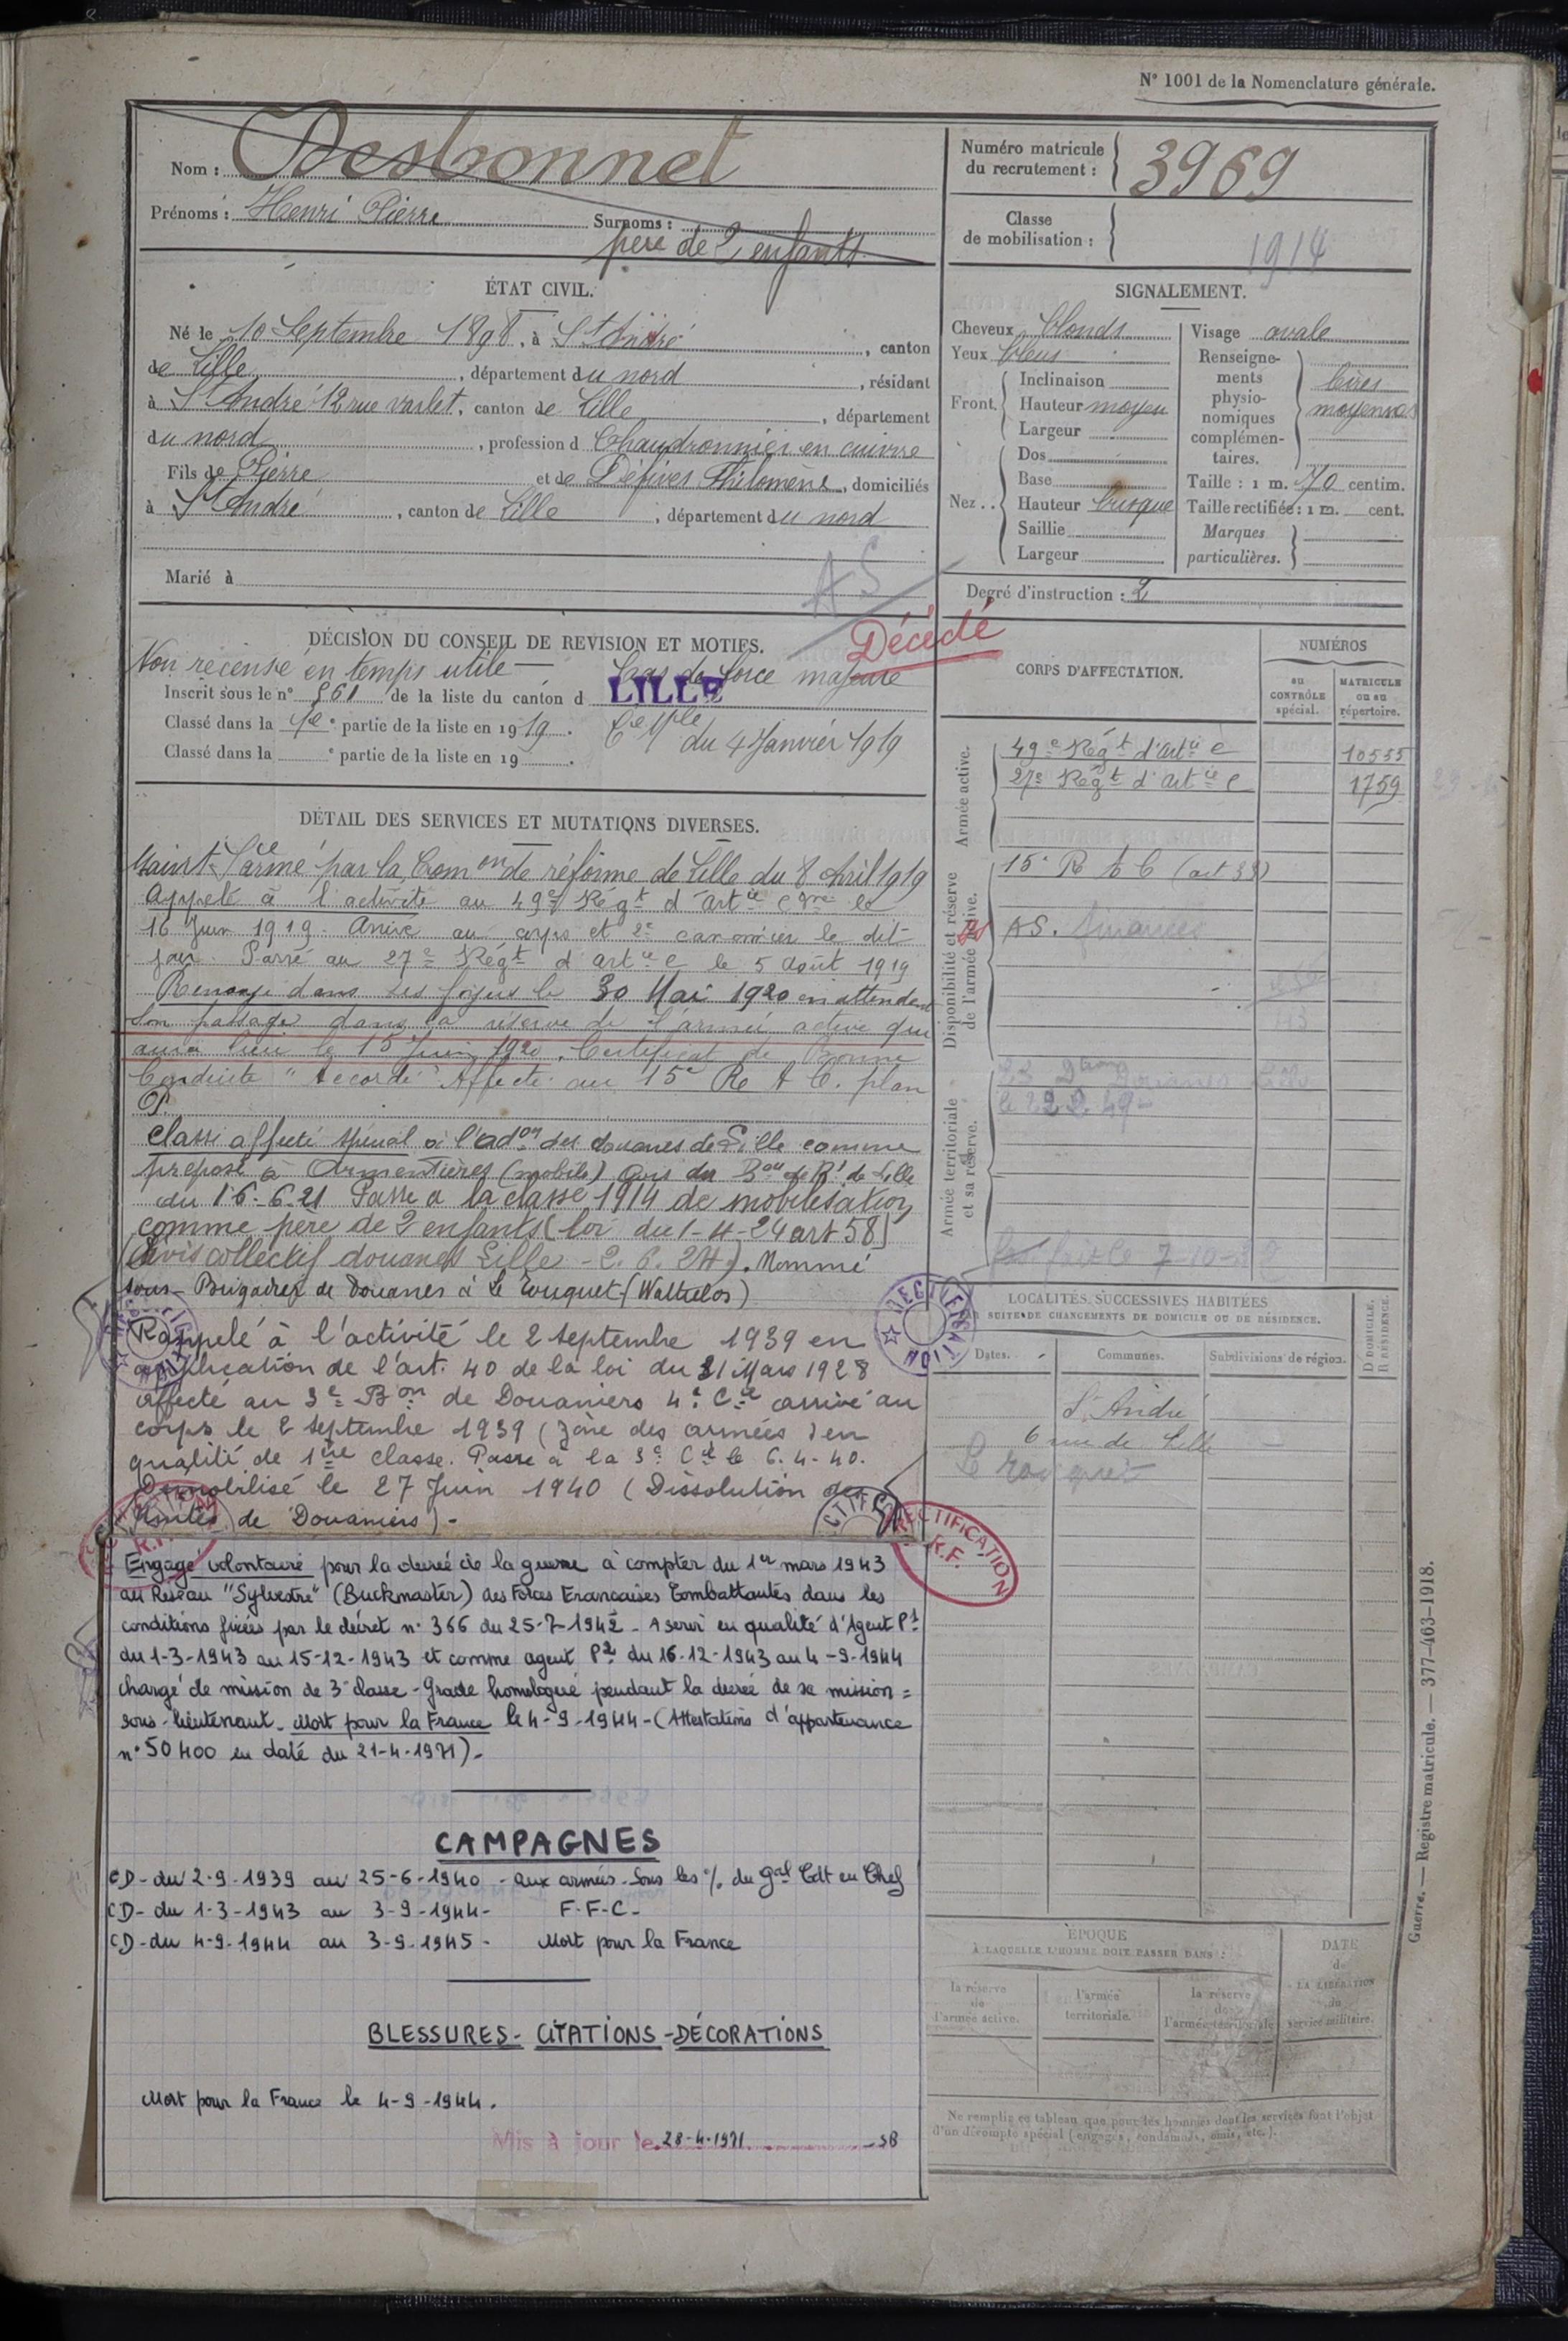 N° 1001 de la Nomenclature générale.
Nom : Desbonnet
Prénoms : Henri Pierre Surnoms :
père de 2 enfants
Numéro matricule du recrutement : 3969
Classe de mobilisation : 1914
ÉTAT CIVIL.
Né le 10 Septembre 1898, à St André, canton
de Lille, département du nord, résidant
à St André 12 rue Varlet, canton de Lille, département
du nord, profession d Chaudronnier en cuivre
Fils de Pierre et de Défives Philomène, domiciliés
à St André, canton de Lille, département du nord
Marié à
AS
Décédé
SIGNALEMENT.
Cheveux blonds
Yeux bleus
Front. Inclinaison
Hauteur moyen
Largeur
Nez . . Dos
Base
Hauteur busqué
Saillie
Largeur
Visage ovale
Renseignements physionomiques complémentaires. moyennes
Taille : 1 m. 70 centim.
Taille rectifiée : 1 m. cent.
Marques particulières.
Degré d'instruction : 2
DÉCISION DU CONSEIL DE REVISION ET MOTIFS.
Non recensé en temps utile — Cas de force majeure
Inscrit sous le n° 861 de la liste du canton d LILLE
Classé dans la 1e partie de la liste en 1919.
du 4 Janvier 1919
Classé dans la e partie de la liste en 19 .
DÉTAIL DES SERVICES ET MUTATIONS DIVERSES.
Maint Sce armé par la Comon de réforme de Lille du 8 Avril 1919
Appelé à l'activité au 49e Régt d'Artie Cgne le
16 Juin 1919. Arrivé au corps et 2e canonnier le dit
jour. Passé au 27e Régt d'artie C le 5 Août 1919
Renvoyé dans ses foyers le 30 Mai 1920 en attendant
son passage dans la réserve de l'armée active qui
aura lieu le 15 Juin 1920. Certificat de Bonne
Conduite "Accordé" Affecté au 15e R A C. plan
P.
Classé affecté spécial à l'adon des douanes de Lille comme
préposé à Armentières (mobile) Avis du Bau de Rt de Lille
du 16-6-21 Passé à la classe 1914 de mobilisation
comme père de 2 enfants (loi du 1-4-24 art 58)
(Avis collectif douanes Lille - 2.6.24). Nommé
sous-Brigadier de Douanes à Le Touquet (Wattrelos)
Rappelé à l'activité le 2 septembre 1939 en
application de l'art. 40 de la loi du 31 Mars 1928
affecté au 3e Bon de Douaniers 4e Cie arrivé au
corps le 2 septembre 1939 (zône des armées) en
qualité de 1ère classe. Passé à la 3e Cie le 6.4.40.
Démobilisé le 27 Juin 1940 (Dissolution des
Unités de Douaniers) -
Engagé volontaire pour la durée de la guerre à compter du 1er mars 1943
au Réseau "Sylvestre" (Buckmaster) des Forces Françaises Combattantes dans les
conditions fixées par le décret n° 366 du 25-7-1942 - A servi en qualité d'Agent P1
du 1-3-1943 au 15-12-1943 et comme agent P2 du 16-12-1943 au 4-9-1944
chargé de mission de 3e classe - Grade homologué pendant la durée de sa mission =
sous-lieutenant. Mort pour la France le 4-9-1944 - (Attestations d'appartenance
n° 50400 en date du 21-4-1971) -
CAMPAGNES
CD - du 2-9-1939 au 25-6-1940 - aux armées - Sous les % du Gal Cdt en Chef
CD - du 1-3-1943 au 3-9-1944 - F-F-C -
CD - du 4-9-1944 au 3-9-1945 - Mort pour la France
BLESSURES - CITATIONS - DÉCORATIONS
Mort pour la France le 4-9-1944.
Mis à jour le 28-4-1971 - SB
CORPS D'AFFECTATION.
NUMÉROS
au CONTRÔLE spécial.
MATRICULE ou au répertoire.
Armée active.
49e Régt d'Artie C 10555
27e Régt d'Artie C 1759
Disponibilité et réserve de l'armée active.
15e R A C (art 33)
AS. finances
Armée territoriale et sa réserve.
RECTIFICATION
RECTIFICATION R.F.
LOCALITÉS SUCCESSIVES HABITÉES
SUITE DE CHANGEMENTS DE DOMICILE OU DE RÉSIDENCE.
D DOMICILE. R RÉSIDENCE.
Dates. Communes. Subdivisions de région.
St André
6 rue de Lille
Le Touquet
ÉPOQUE
À LAQUELLE L'HOMME DOIT PASSER DANS :
la réserve de l'armée active.
l'armée territoriale.
la réserve de l'armée territoriale
DATE de LA LIBÉRATION du service militaire.
Ne remplir ce tableau que pour les hommes dont les services font l'objet
d'un décompte spécial (engagés, condamnés, omis, etc.).
Guerre. — Registre matricule. — 377-463-1918.